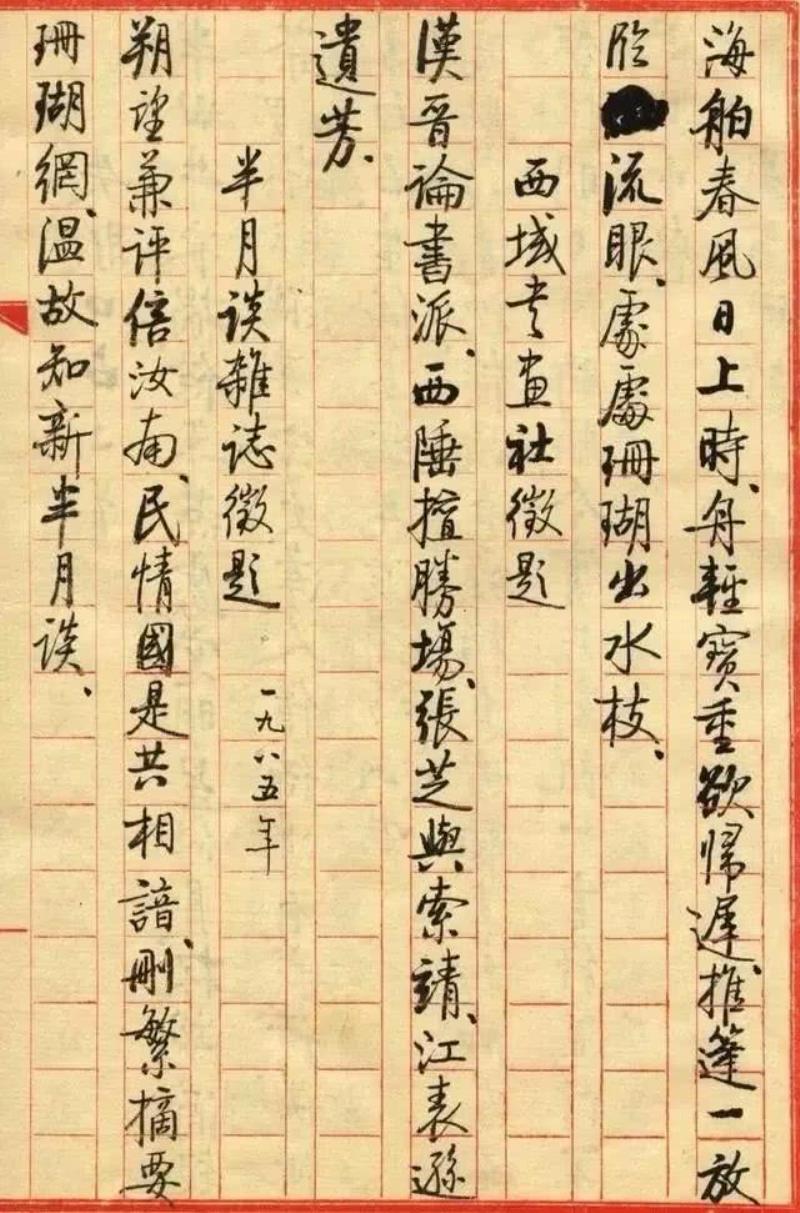 海舶春風日上時、舟輕寶重欲帰遲、推篷一放
临流眼、處處珊瑚出水枝、
西域书画社徵題
漢晋論書派、西陲擅勝場、張芝與索靖、江表遜
遺芳、
半月談雜誌徵題 一九八五年
朔望兼評倍汝南、民情國是共相諳、刪繁摘要
珊瑚網、温故知新半月談、